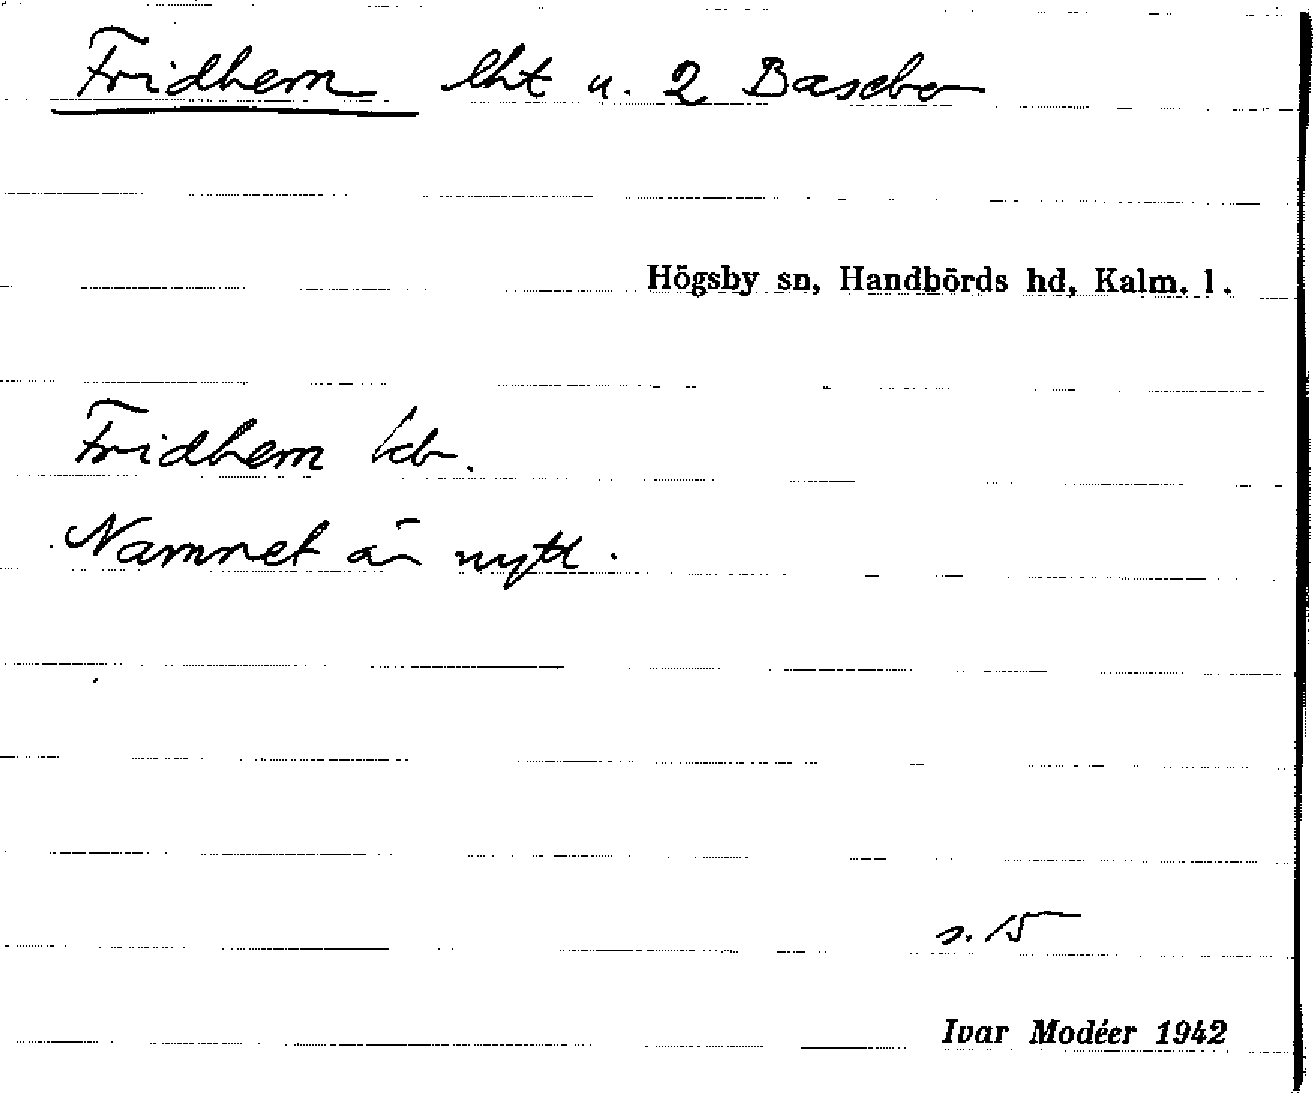 Fridhem lht u. 2 Basebo
Högsby sn, Handbörds hd, Kalm. l.
Fridhem kb.
Namnet är nytt.
s. 15
Ivar Modéer 1942